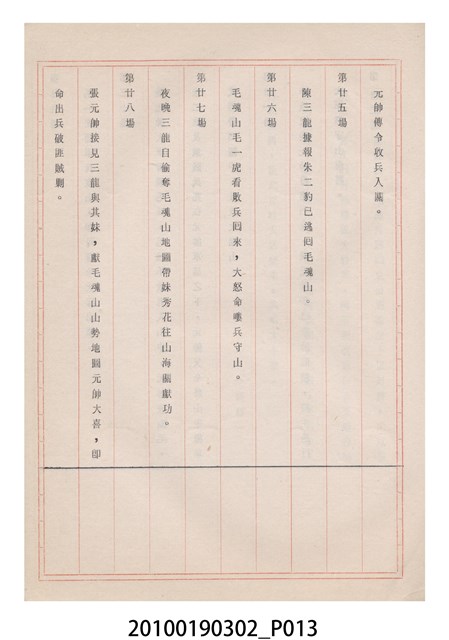 元帥傳令收兵入關。
第廿五場
陳三龍據報朱二豹已逃囘毛魂山。
第廿六場
毛魂山毛一虎看敗兵囘來，大怒命嘍兵守山。
第廿七場
夜晚三龍目偷奪毛魂山地圖帶妹秀花往山海關獻功。
第廿八場
張元帥接見三龍與其妹，獻毛魂山山勢地圖元帥大喜，卽
命出兵破誰賊剿。
20100190302_P013